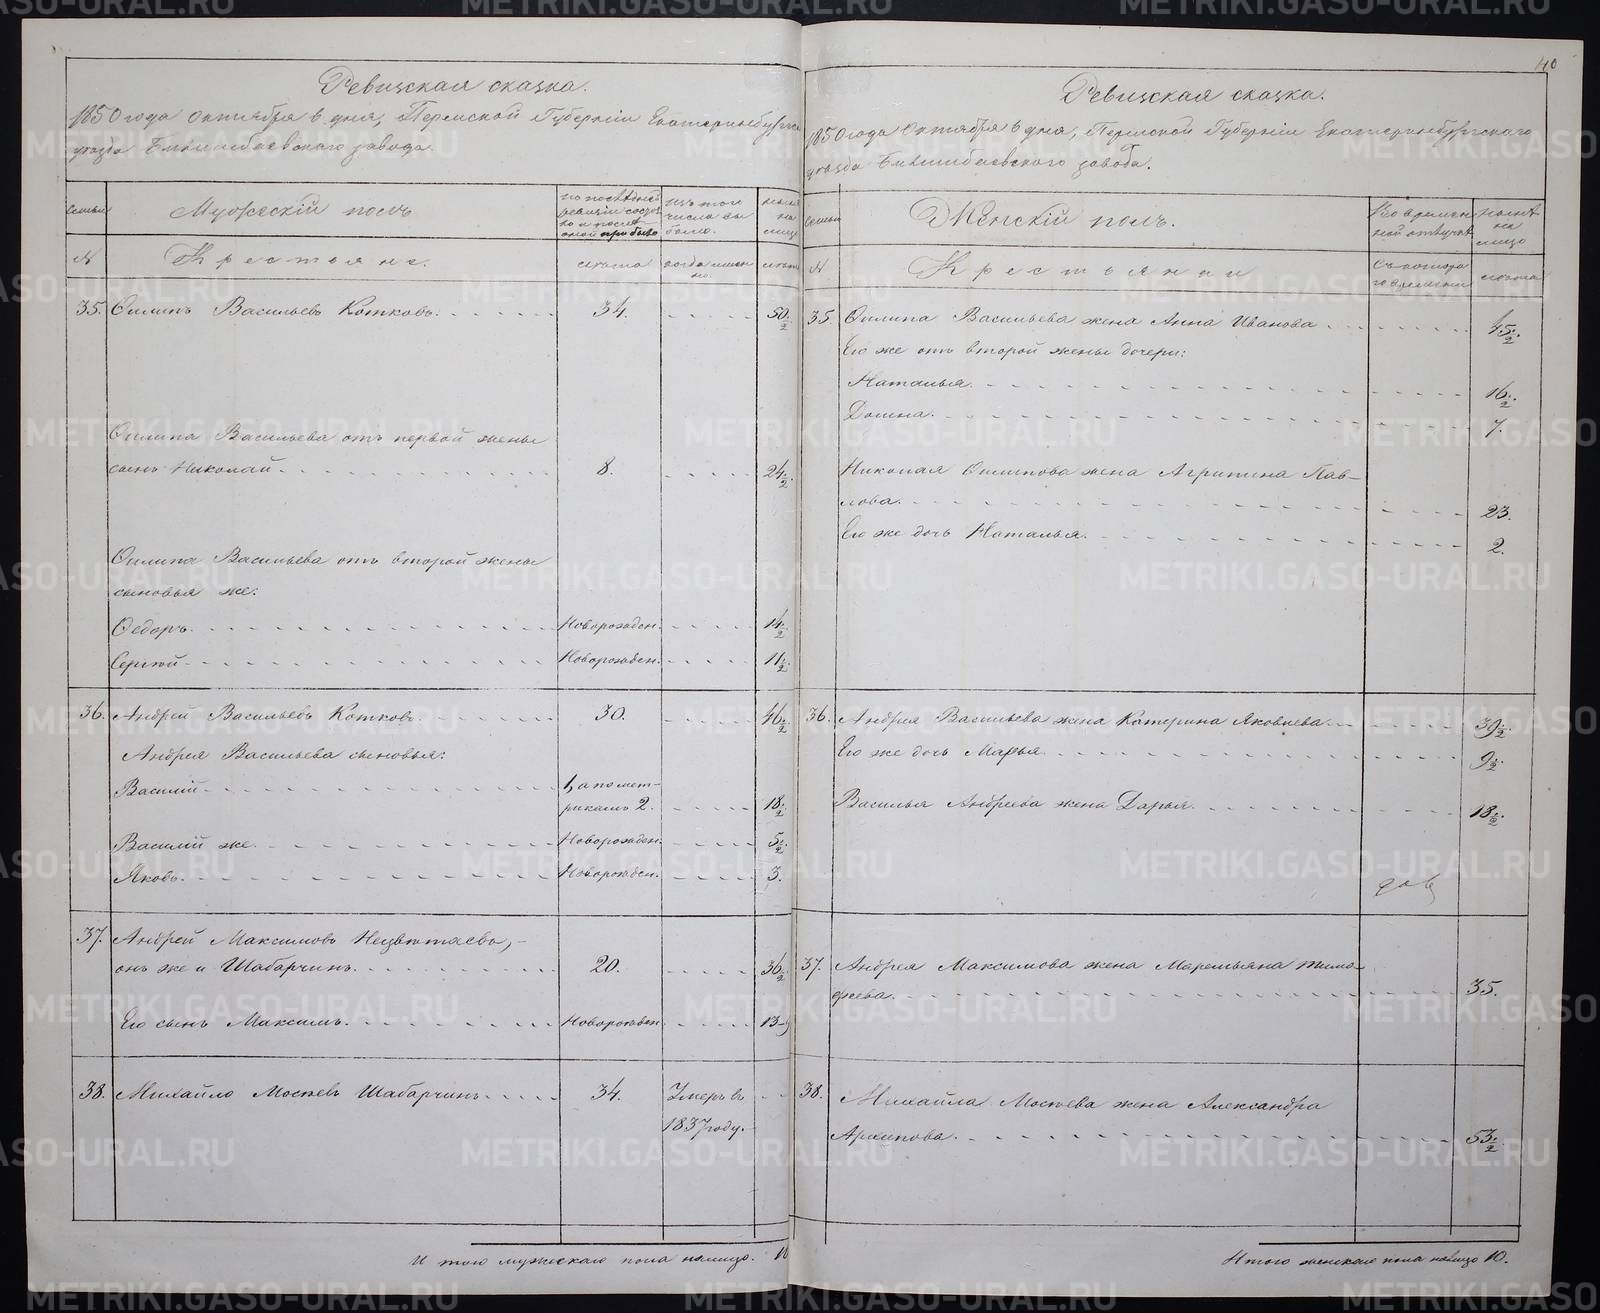 Ревизская сказка.
1850 года Октября 6 дня, Пермской Губерніи Екатеринбургска
уѣзда Билимбаевскаго завода.
Семьи
Мужескій полъ
по послѣдней
ревизіи состоя
ло и послѣ
оной прибыло
изъ того
числа вы
было.
нынѣ
на
лицо
N
Крестьяне.
лѣта
когда имен
но.
лѣта
35. Филипъ Васильевъ Котковъ. 34. 50 1/2
Филипа Васильева отъ первой жены
сынъ Николай 8. 24 1/2
Филипа Васильева отъ второй жены
сыновья же:
Федоръ. Новорожден. 14 1/2
Сергѣй Новорожден. 11 1/2
36. Андрей Васильевъ Котковъ 30. 46 1/2
Андрея Васильева сыновья:
Василій 1, а по мет-
рикамъ 2. 18 1/2
Василій же Новорожден. 5 1/2
Яковъ. Новорожден. 3.
37. Андрей Максимовъ
онъ же и Шабарчинъ 20. 36 1/2
Его сынъ Максимъ. Новорожден 13
38. Михайло Мосѣевъ Шабарчинъ 34. Умеръ въ
1837 году.
И того мужескаго пола налицо. 10
40
Ревизская сказка.
1850 года Октября 6 дня, Пермской Губерніи Екатеринбургскаго
уѣзда Билимбаевскаго завода.
Семьи
Женскій полъ.
Во времен
ной отлучкѣ
нынѣ
на
лицо
N
Крестьянки
Съ котора
го времени
лѣта
35. Филипа Васильева жена Анна Иванова 45 1/2
Его же отъ второй жены дочери:
Наталья 16 1/2
Домна. 7
Николая Филипова жена Агрипина Пав-
лова. 23.
Его же дочь Наталья. 2.
36. Андрея Васильева жена Катерина Яковлева 39 1/2
Его же дочь Марья 9 1/2
Василья Андреева жена Дарья. 18 1/2
37. Андрея Максимова жена Маремьяна Тимо-
феева. 35.
38. Михайла Мосѣева жена Александра
Архипова. 53 1/2
Итого женскаго пола налицо 10.
METRIKI.GASO-URAL.RU